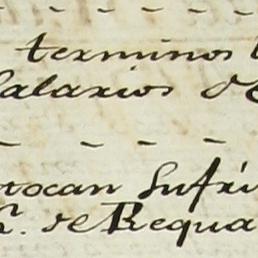 terminos
Salarios de
tocan Sufri
R. de Requa